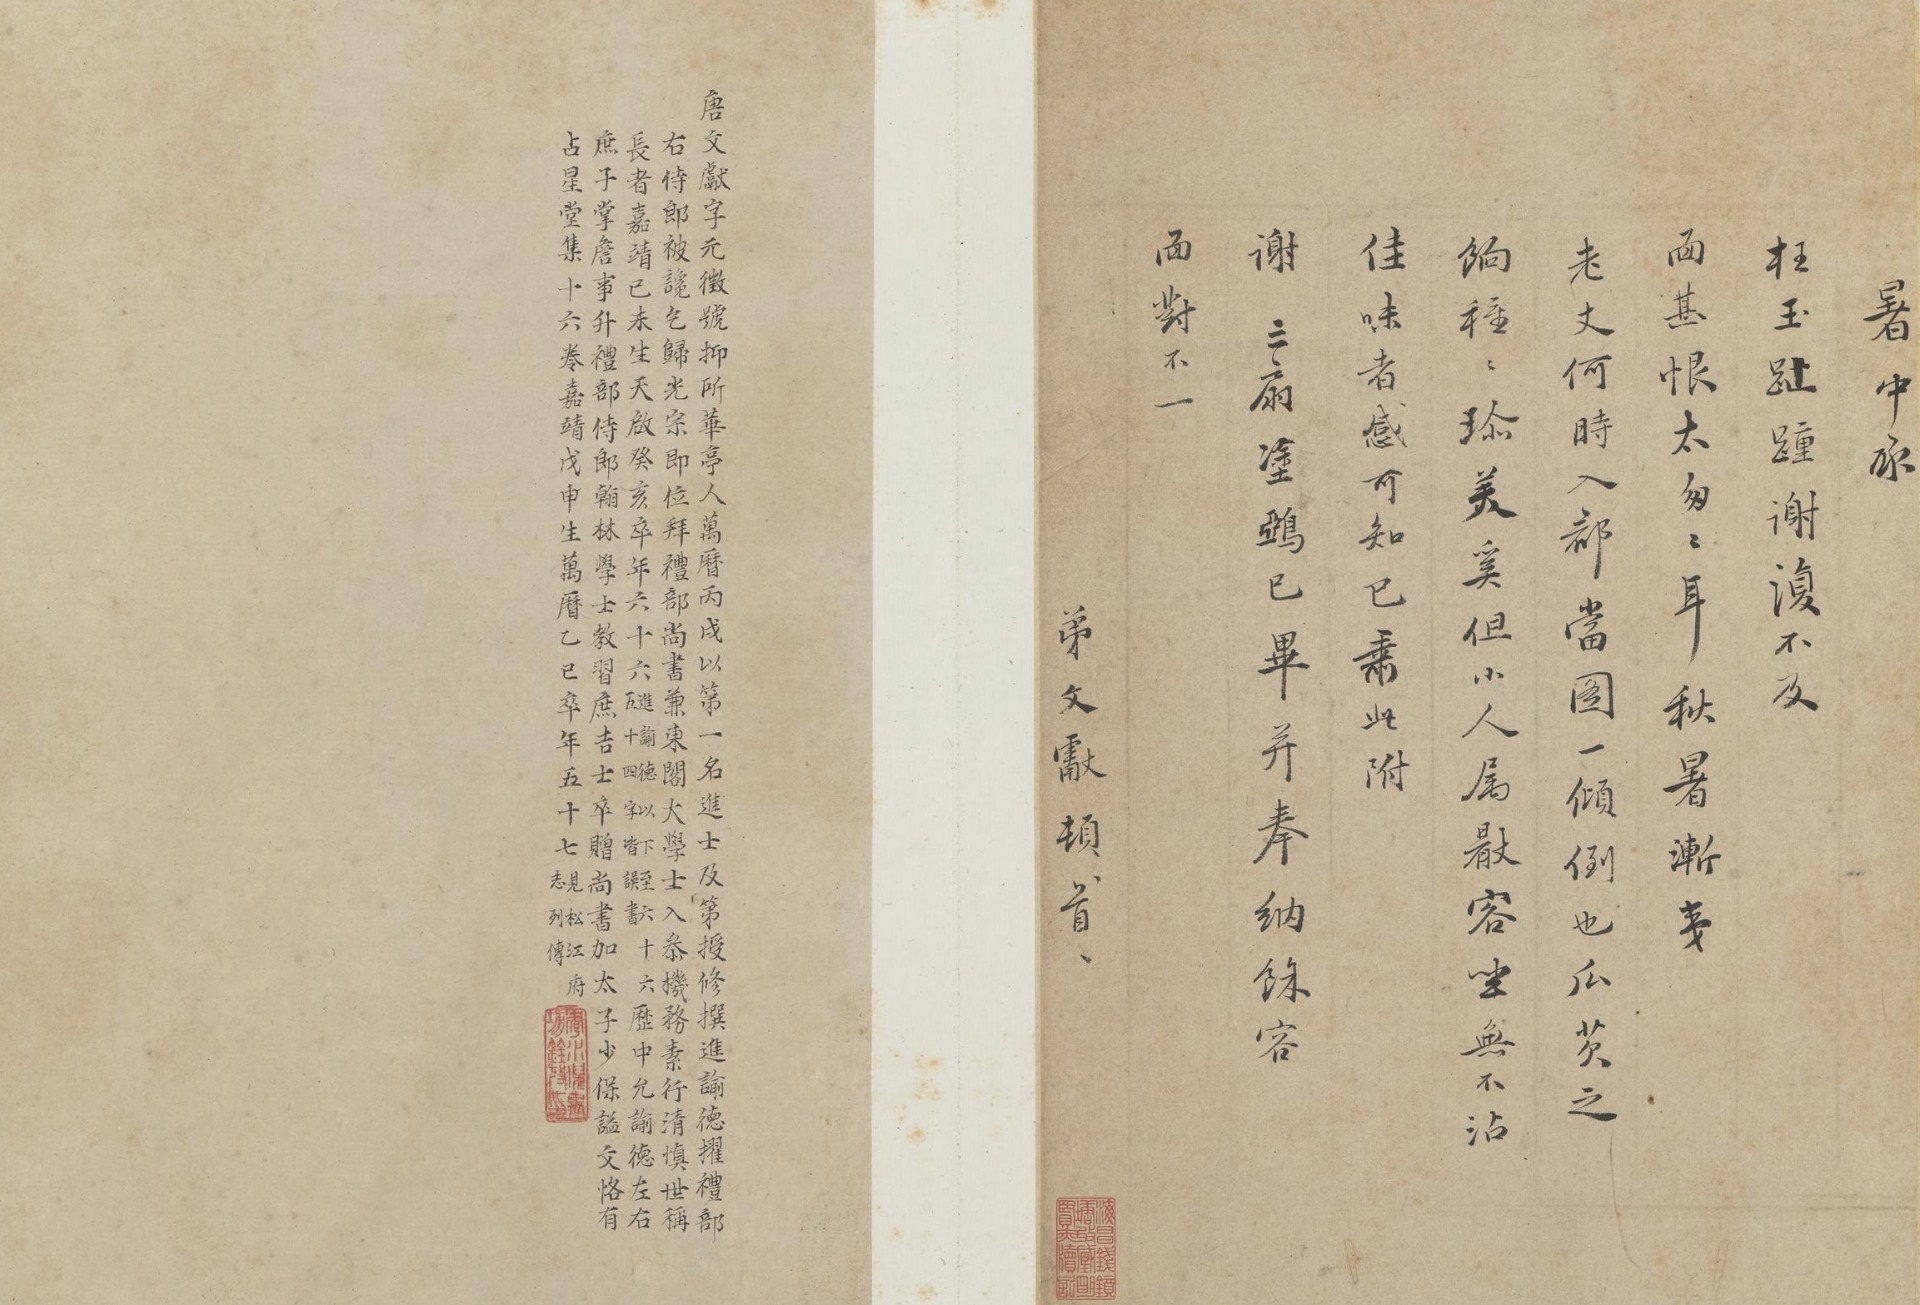 暑中承
枉玉趾踵謝復不及
面甚恨太匆〻耳秋暑漸
老丈何時入都當圖一傾倒也瓜芡之
餉種〻珍美奚但小人属厭客坐無不沾
佳味者感可知已乘此附
謝 二扇塗鴉已畢并奉納餘容
面對不一
弟文獻頓首
唐文獻字元徵號抑所華亭人萬曆丙戌以第一名進士及第授修撰進諭德擢禮部
右侍郎被讒乞歸光宗即位拜禮部尚書兼東閣大學士入叅機務素行清慎世稱
長者嘉靖已未生天啟癸亥卒年六十六進諭德以下至六十六五十四字皆誤書歷中允諭德左右
庶子掌詹事升禮部侍郎翰林學士教習庶吉士卒贈尚書加太子少保謚文恪有
占星堂集十六卷嘉靖戊申生萬曆乙巳卒年五十七見松江府志列傳